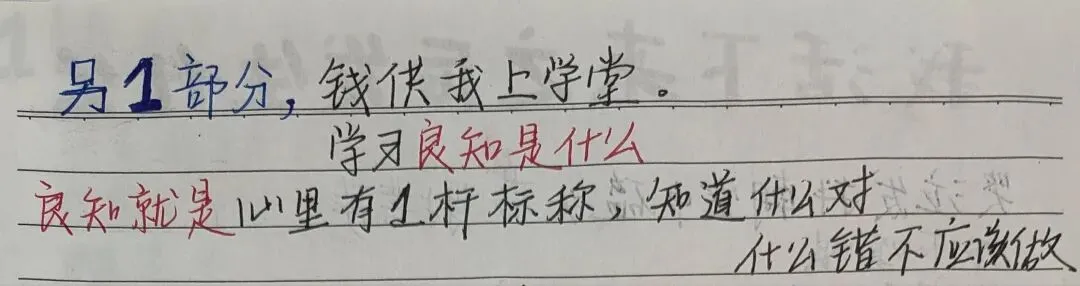 另1部分,钱供我上学堂。
学习良知是什么
良知就是心里有1杆标称,知道什么对
什么错不应该做